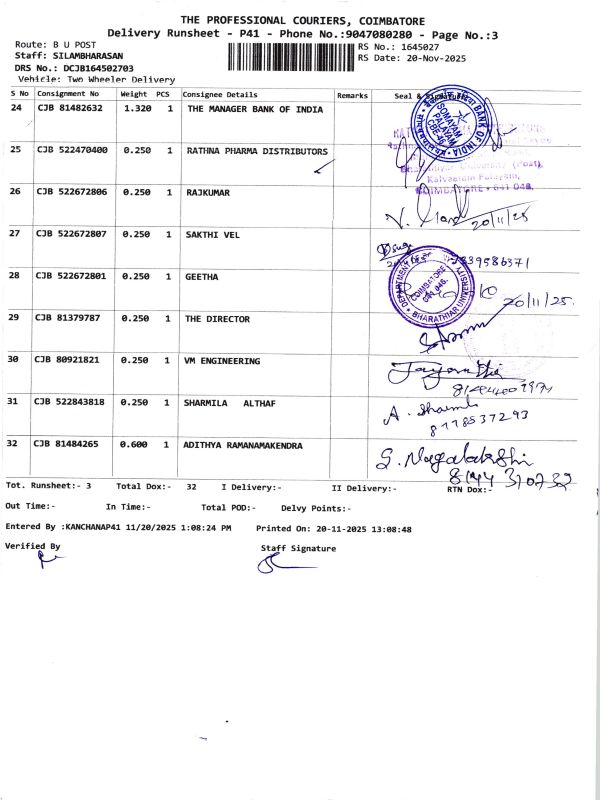 THE PROFESSIONAL COURIERS, COIMBATORE
Delivery Runsheet - P41 - Phone No.:9047080280 - Page No.:3
Route: B U POST
Staff: SILAMBHARASAN
DRS No.: DCJB164502703
Vehicle: Two Wheeler Delivery
RS No.: 1645027
RS Date: 20-Nov-2025
S No Consignment No Weight PCS Consignee Details Remarks Seal &
24 CJB 81482632 1.320 1 THE MANAGER BANK OF INDIA
BANK OF INDIA
SOMAYAM PALAYAM CBE-46
25 CJB 522470400 0.250 1 RATHNA PHARMA DISTRIBUTORS
University (Post),
Kalveeram Palayam,
COIMBATORE - 641 046.
26 CJB 522672806 0.250 1 RAJKUMAR
20/11/25
27 CJB 522672807 0.250 1 SAKTHI VEL
28 CJB 522672801 0.250 1 GEETHA
COIMBATORE 641 046.
BHARATHIAR UNIVERSITY
20/11/25.
29 CJB 81379787 0.250 1 THE DIRECTOR
30 CJB 80921821 0.250 1 VM ENGINEERING
31 CJB 522843818 0.250 1 SHARMILA ALTHAF
A. Sharmila
8778537293
32 CJB 81484265 0.600 1 ADITHYA RAMANAMAKENDRA
S. Nagalakshi
Tot. Runsheet:- 3 Total Dox:- 32 I Delivery:- II Delivery:- RTN Dox:-
Out Time:- In Time:- Total POD:- Delvy Points:-
Entered By :KANCHANAP41 11/20/2025 1:08:24 PM Printed On: 20-11-2025 13:08:48
Verified By Staff Signature